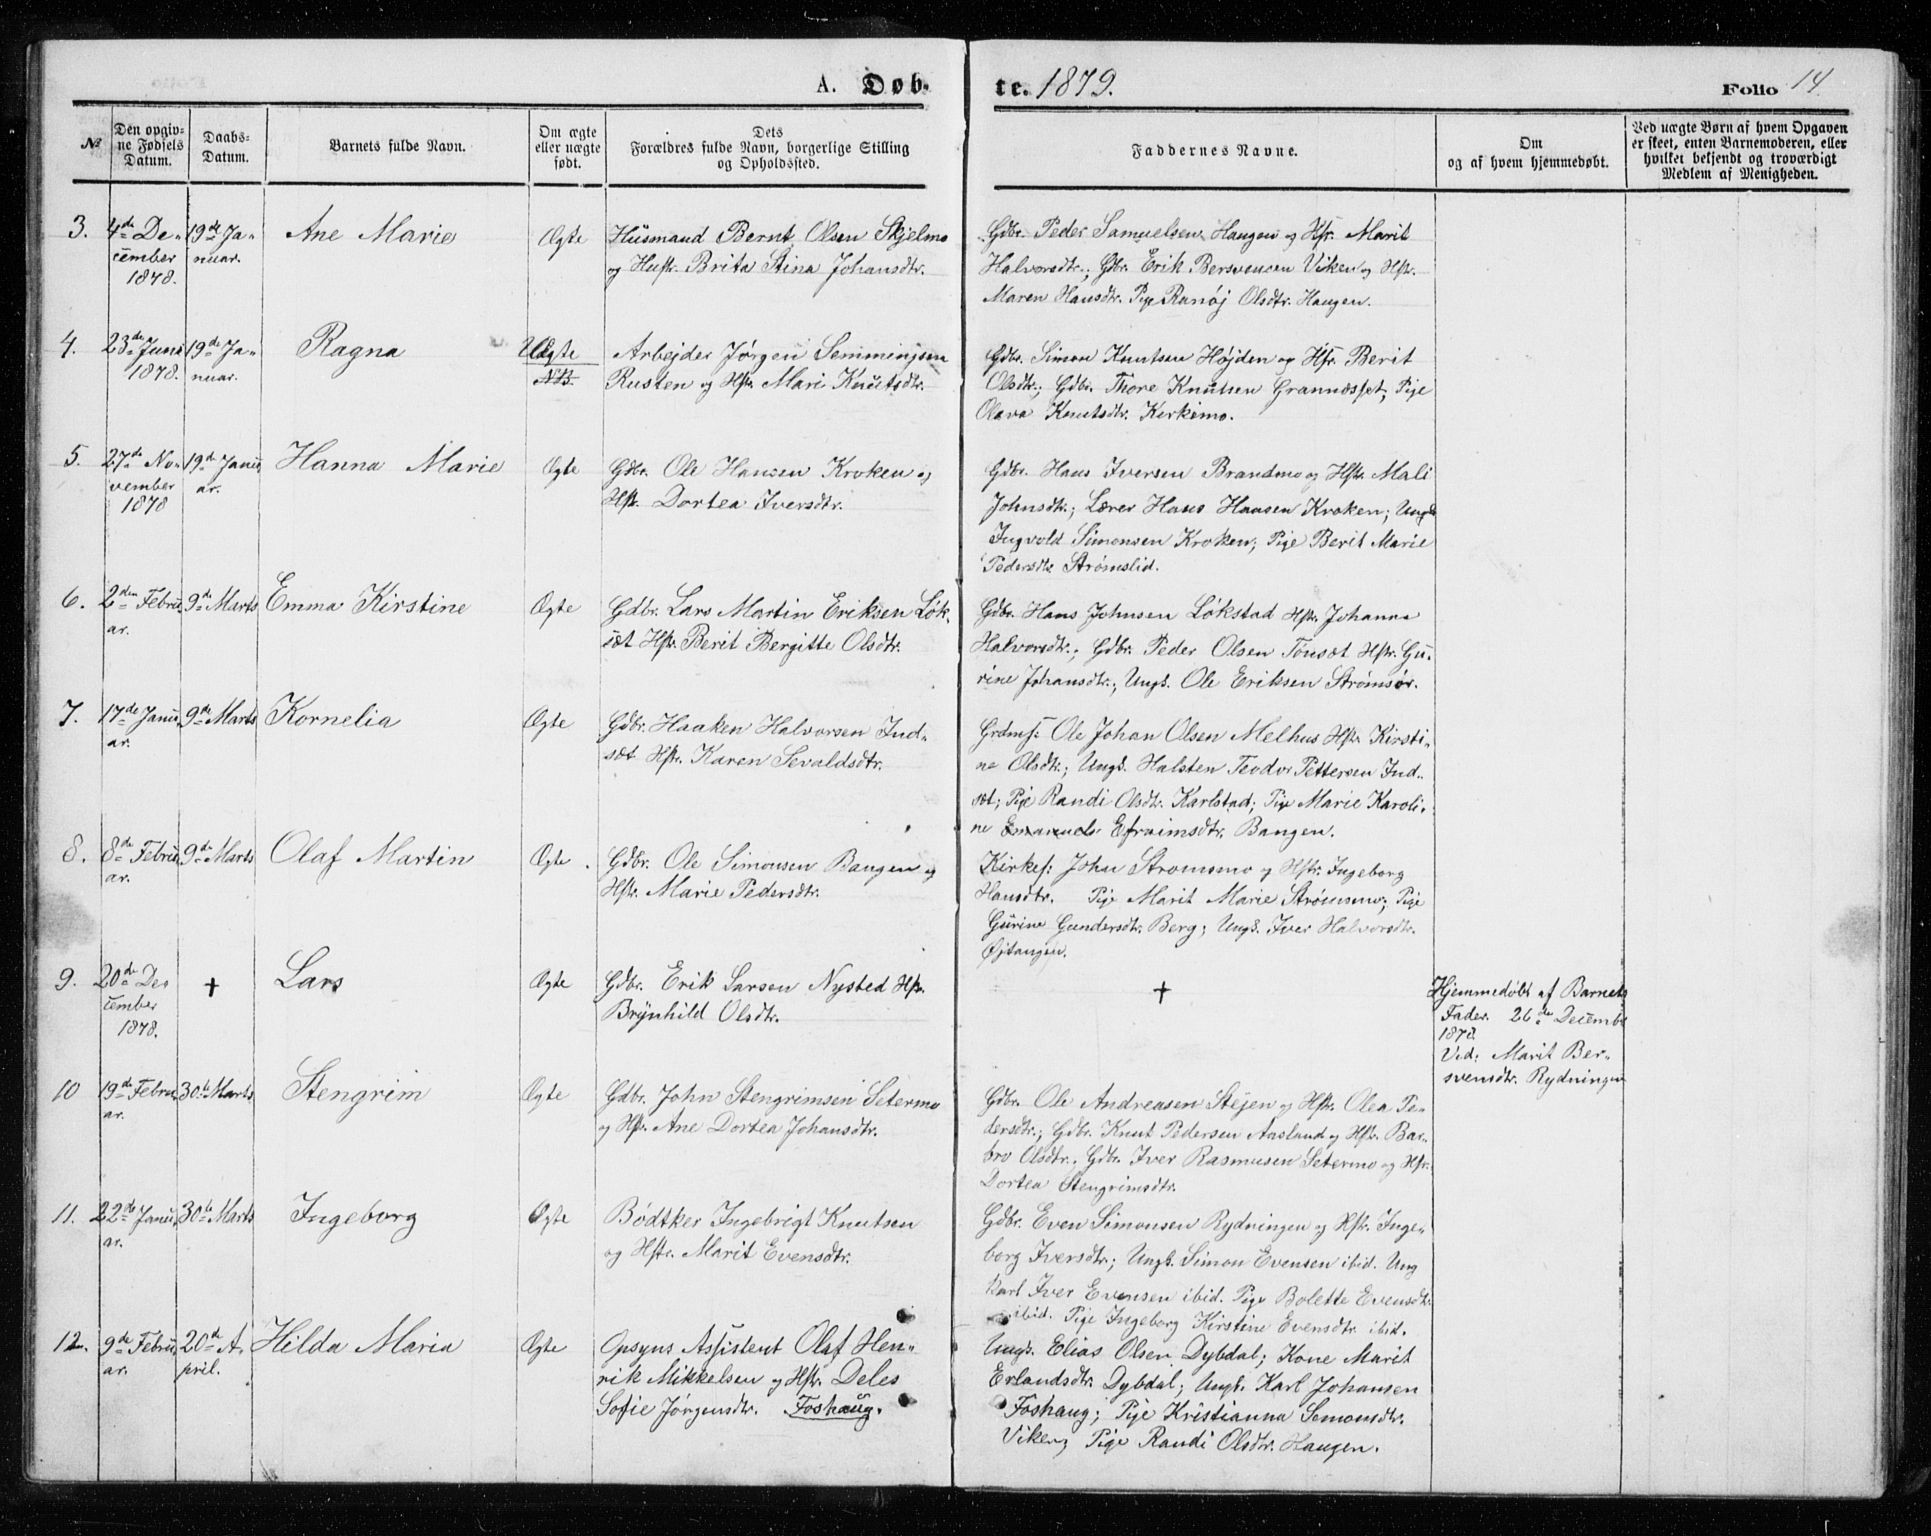 A. Døb-
te. 1879.
Folio 14
№
Den opgiv-
ne Fødsels
Datum.
Daabs-
Datum.
Barnets fulde Navn.
Om ægte
eller uægte
født.
Dets
Forældres fulde Navn, borgerlige Stilling
og Opholdssted.
Faddernes Navne.
Om
og af hvem hjemmedøbt.
Ved uægte Børn af hvem Opgaven
er skeet, enten Barnemoderen, eller
hvilket bekjendt og troværdigt
Medlem af Menigheden.
3.
4de De-
cember
1878.
19de Ja-
nuar.
Ane Marie
Ægte
Husmand Bernt Olsen Skjelmo
og Hustr. Brita Stina Johansdtr.
Gdbr. Peder Samuelsen Haugen og Hstr. Marit
Halvorsdtr.; Gdbr. Erik Bersvensen Viken og Hstr.
Maren Hansdtr. Pige Ranøj Olsdtr. Haugen.
4.
23de Juni
1878.
19de Ja-
nuar.
Ragna
Uægte
NB.
Arbejder Jørgen Semmingsen
Rusten og Hstr. Mari Knutsdtr.
Gdbr. Simon Knutsen Højden og Hstr. Berit
Olsdtr.; Gdbr. Thore Knutsen Grannæsset; Pige
Olava Knutsdtr. Kirkemo.
5.
27de No-
vember
1878
19de Janu-
ar.
Hanna Marie
Ægte
Gdbr. Ole Hansen Kroken og
Hstr. Dortea Iversdtr.
Gdbr. Hans Iversen Brandmo og Hstr. Mali
Johnsdtr.; Lærer Hans Hansen Kroken; Ungk.
Ingvold Simonsen Kroken; Pige Berit Marie
Pedersdtr. Strømslid.
6.
2den Febru-
ar.
9de Marts
Emma Kirstine
Ægte
Gdbr. Lars Martin Eriksen Løk-
sæt Hstr. Berit Bergitte Olsdtr.
Gdbr. Hans Johnsen Løkstad Hstr. Johanna
Halvorsdtr.; Gdbr. Peder Olsen Tønsæt Hstr. Gu-
rine Johansdtr.; Ungk. Ole Eriksen Strømsør.
7.
17de Janu-
ar.
9de Marts
Kornelia
Ægte
Gdbr. Haaken Halvorsen Ind-
sæt Hstr. Karen Sevaldsdtr.
Grdms: Ole Johan Olsen Melhus Hstr. Kirsti-
ne Olsdtr.; Ungk. Halsten Teodor Pettersen Ind-
sæt; Pige Randi Olsdtr. Karlstad; Pige Marie Karoli-
ne Efraimsdtr. Bangen.
8.
8de Febru-
ar.
9de Marts
Olaf Martin
Ægte
Gdbr. Ole Simonsen Bangen og
Hstr. Marie Pedersdtr.
Kirkes: John Strømsmo og Hstr. Ingeborg
Hansdtr. Pige Marit Marie Strømsmo; Pige
Gurine Gundersdtr. Berg; Ungk. Iver Halvorsdtr.
Øjtangen.
9.
20de De-
cember
1878.
+
Lars
Ægte
Gdbr. Erik Larsen Nysted Hstr.
Brynhild Olsdtr.
+
Hjemmedøbt af Barnets
Fader 26de Decembr
1878.
Vid: Marit Ber-
svensdtr. Rydningen
10
19de Febru-
ar.
30te Marts
Stengrim
Ægte
Gdbr. John Stengrimsen Setermo
og Hstr. Ane Dortea Johansdtr.
Gdbr. Ole Andreasen Stejen og Hstr. Olea Pe-
dersdtr.; Gdbr. Knut Pedersen Aasland og Hstr. Bar-
bro Olsdtr. Gdbr. Iver Rasmusen Setermo og Hstr.
Dortea Stengrimsdtr.
11.
22de Janu-
ar.
30te Marts
Ingeborg
Ægte
Bødtker Ingebrigt Knutsen
og Hstr. Marit Evensdtr.
Gdbr. Even Simonsen Rydningen og Hstr. Inge-
borg Iversdtr.; Ungk. Simon Evensen ibid. Ung
karl Iver Evensen ibid. Pige Bolette Evensdtr.
ibid. Pige Ingeborg Kirstine Evensdtr. ibid.
12.
9de Febru-
ar.
20de A-
pril.
Hilda Maria
Ægte
Opsyns Assistent Olaf Hen-
rik Mikkelsen og Hstr. Deles
Sofie Jørgensdtr. Foshaug.
Ungk. Elias Olsen Dybdal; Kone Marit
Erlandsdtr. Dybdal; Ungk. Karl Johansen
Foshaug; Pige Kristianna Semonsdtr.
Viken; Pige Randi Olsdtr. Haugen.